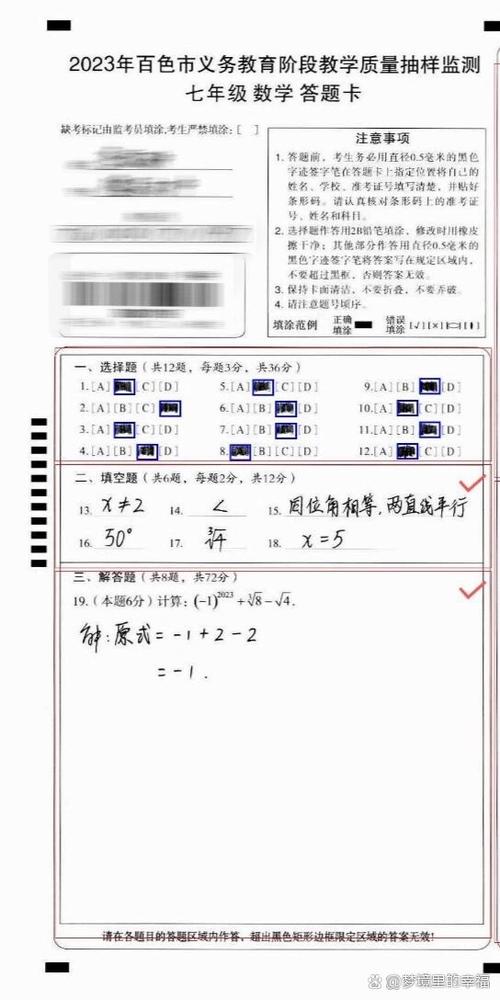 2023年百色市义务教育阶段教学质量抽样监测
七年级 数学 答题卡
缺考标记由监考员填涂,考生严禁填涂: [ ]
注意事项
1. 答题前，考生务必用直径0.5毫米的黑色
字迹签字笔在答题卡上指定位置将自己的
姓名、学校、准考证号填写清楚，并贴好
条形码。请认真核对条形码上的准考证
号、姓名和科目。
2. 选择题作答用2B铅笔填涂，修改时用橡皮
擦干净；其他部分作答用直径0.5毫米的
黑色字迹签字笔将答案写在规定区域内，
不要超过黑框，否则答案无效。
3. 保持卡面清洁，不要折叠，不要弄破。
4. 请注意题号顺序。
填涂范例 正确填涂 错误填涂 [√] [×]
一、选择题（共12题，每题3分，共36分）
1. [A] [C] [D] 5. [A] [C] [D] 9. [A] [B] [D]
2. [A] [B] [C] 6. [A] [B] [D] 10. [A] [C] [D]
3. [A] [C] [D] 7. [A] [B] [D] 11. [A] [B] [D]
4. [A] [B] [D] 8. [B] [C] [D] 12. [A] [C] [D]
二、填空题（共6题，每题2分，共12分）
13. x≠2 14. < 15. 同位角相等,两直线平行
16. 50° 17. ∛4 18. x=5
三、解答题（共8题，共72分）
19.（本题6分）计算：(-1)²⁰²³+∛8-√4.
解:原式=-1+2-2
=-1.
请在各题目的答题区域内作答，超出黑色矩形边框限定区域的答案无效!
@梦境里的幸福